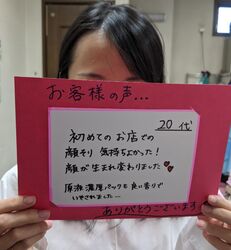 お客様の声...
20代
初めてのお店での
顔そり 気持ちよかった!
顔が生まれ変わりました♥♥
原液濃厚パックも良い香りで
いやされました...
ありがとうございます